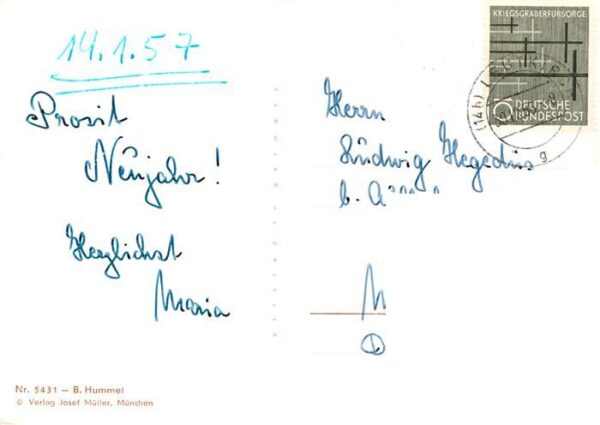 14.1.57
Prosit
Neujahr!
Herzlichst
Maria
Nr. 5431 — B. Hummel
© Verlag Josef Müller, München
KRIEGSGRÄBERFÜRSORGE
10 DEUTSCHE
BUNDESPOST
(14b)
g
Herrn
Ludwig Hegedüs
b.
M